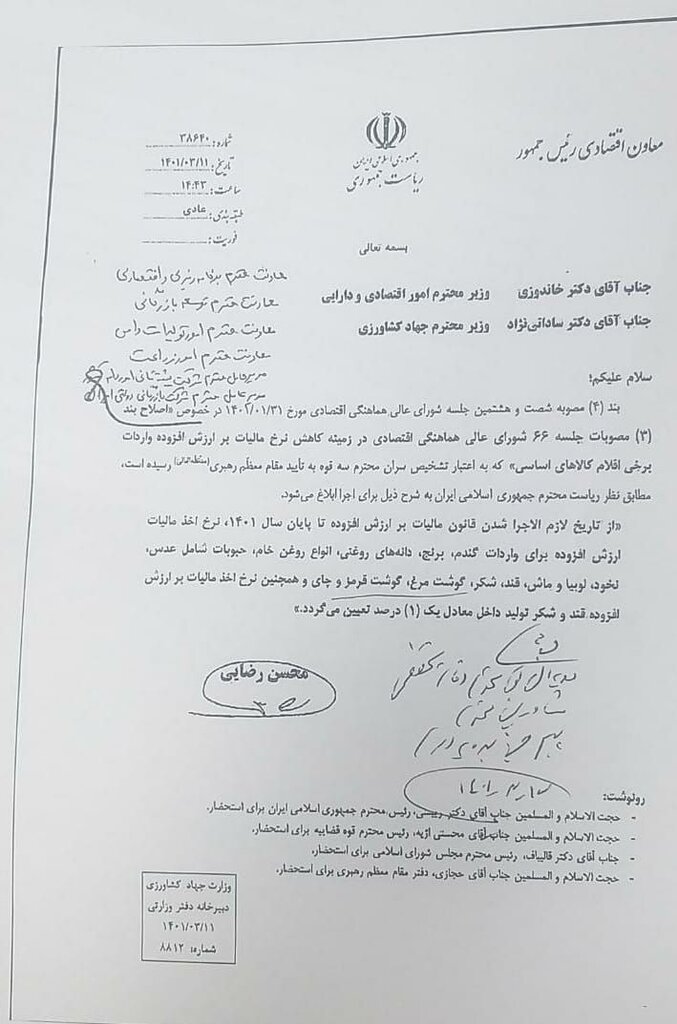 معاون اقتصادی رئیس جمهور
جمهوری اسلامی ایران
ریاست جمهوری
شماره: ۳۸۶۴۰
تاریخ: ۱۴۰۱/۰۳/۱۱
ساعت: ۱۴:۴۳
طبقه بندی: عادی
فوریت:
بسمه تعالی
جناب آقای دکتر خاندوزی وزیر محترم امور اقتصادی و دارایی
جناب آقای دکتر ساداتی‌نژاد وزیر محترم جهاد کشاورزی
معاونت محترم برنامه ریزی و اقتصادی
معاونت محترم توسعه بازرگانی
معاونت محترم امور تولیدات دامی
معاونت محترم امور زراعت
مدیرعامل محترم شرکت پشتیبانی امور دام
مدیر عامل محترم شرکت بازرگانی دولتی
سلام علیکم؛
بند (۴) مصوبه شصت و هشتمین جلسه شورای عالی هماهنگی اقتصادی مورخ ۱۴۰۱/۰۱/۳۱ در خصوص «اصلاح بند
(۳) مصوبات جلسه ۶۶ شورای عالی هماهنگی اقتصادی در زمینه کاهش نرخ مالیات بر ارزش افزوده واردات
برخی اقلام کالاهای اساسی» که به اعتبار تشخیص سران محترم سه قوه به تأیید مقام معظم رهبری رسیده است،
مطابق نظر ریاست محترم جمهوری اسلامی ایران به شرح ذیل برای اجرا ابلاغ می‌شود.
«از تاریخ لازم الاجرا شدن قانون مالیات بر ارزش افزوده تا پایان سال ۱۴۰۱، نرخ اخذ مالیات
ارزش افزوده برای واردات گندم، برنج، دانه‌های روغنی، انواع روغن خام، حبوبات شامل عدس،
نخود، لوبیا و ماش، قند، شکر، گوشت مرغ، گوشت قرمز و چای و همچنین نرخ اخذ مالیات بر ارزش
افزوده قند و شکر تولید داخل معادل یک (۱) درصد تعیین می‌گردد.»
محسن رضایی
رونوشت:
- حجت الاسلام و المسلمین جناب آقای دکتر رییسی، رئیس محترم جمهوری اسلامی ایران برای استحضار.
- حجت الاسلام و المسلمین جناب آقای محسنی اژیه، رئیس محترم قوه قضاییه برای استحضار.
- جناب آقای دکتر قالیباف، رئیس محترم مجلس شورای اسلامی برای استحضار.
- حجت الاسلام و المسلمین جناب آقای حجازی، دفتر مقام معظم رهبری برای استحضار.
وزارت جهاد کشاورزی
دبیرخانه دفتر وزارتی
۱۴۰۱/۰۳/۱۱
شماره: ۸۸۱۲